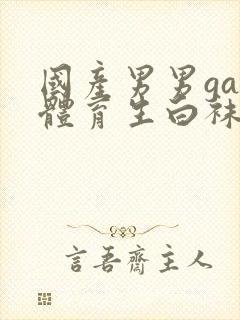 國產男男ga
體育生白襪
言吾齋主人